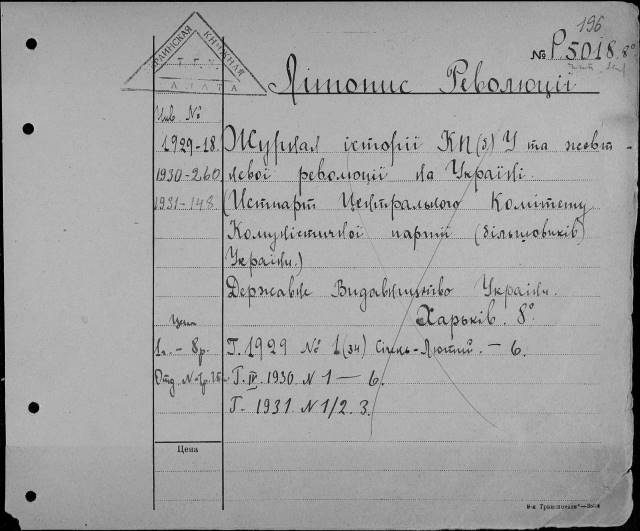 196
№ Р.5018. 8°
УКРАИНСКАЯ КНИЖНАЯ
ПАЛАТА
Літопис Революції
Инв №
1929-18. Журнал історії КП(з)У та жовт-
1930-260 невої революції на Україні.
1931-148 (Истпарт Центрального Комітету
Комуністичної партії (більшовиків)
України.)
Державне Видавництво України.
Харьків. 8°
Цена
1г. - 8р. Г. 1929 № 1(34) Січень-Лютий. - 6.
Отд. Г. IV. 1930. N 1 — 6.
Г. 1931 N 1/2. 3.
Цена